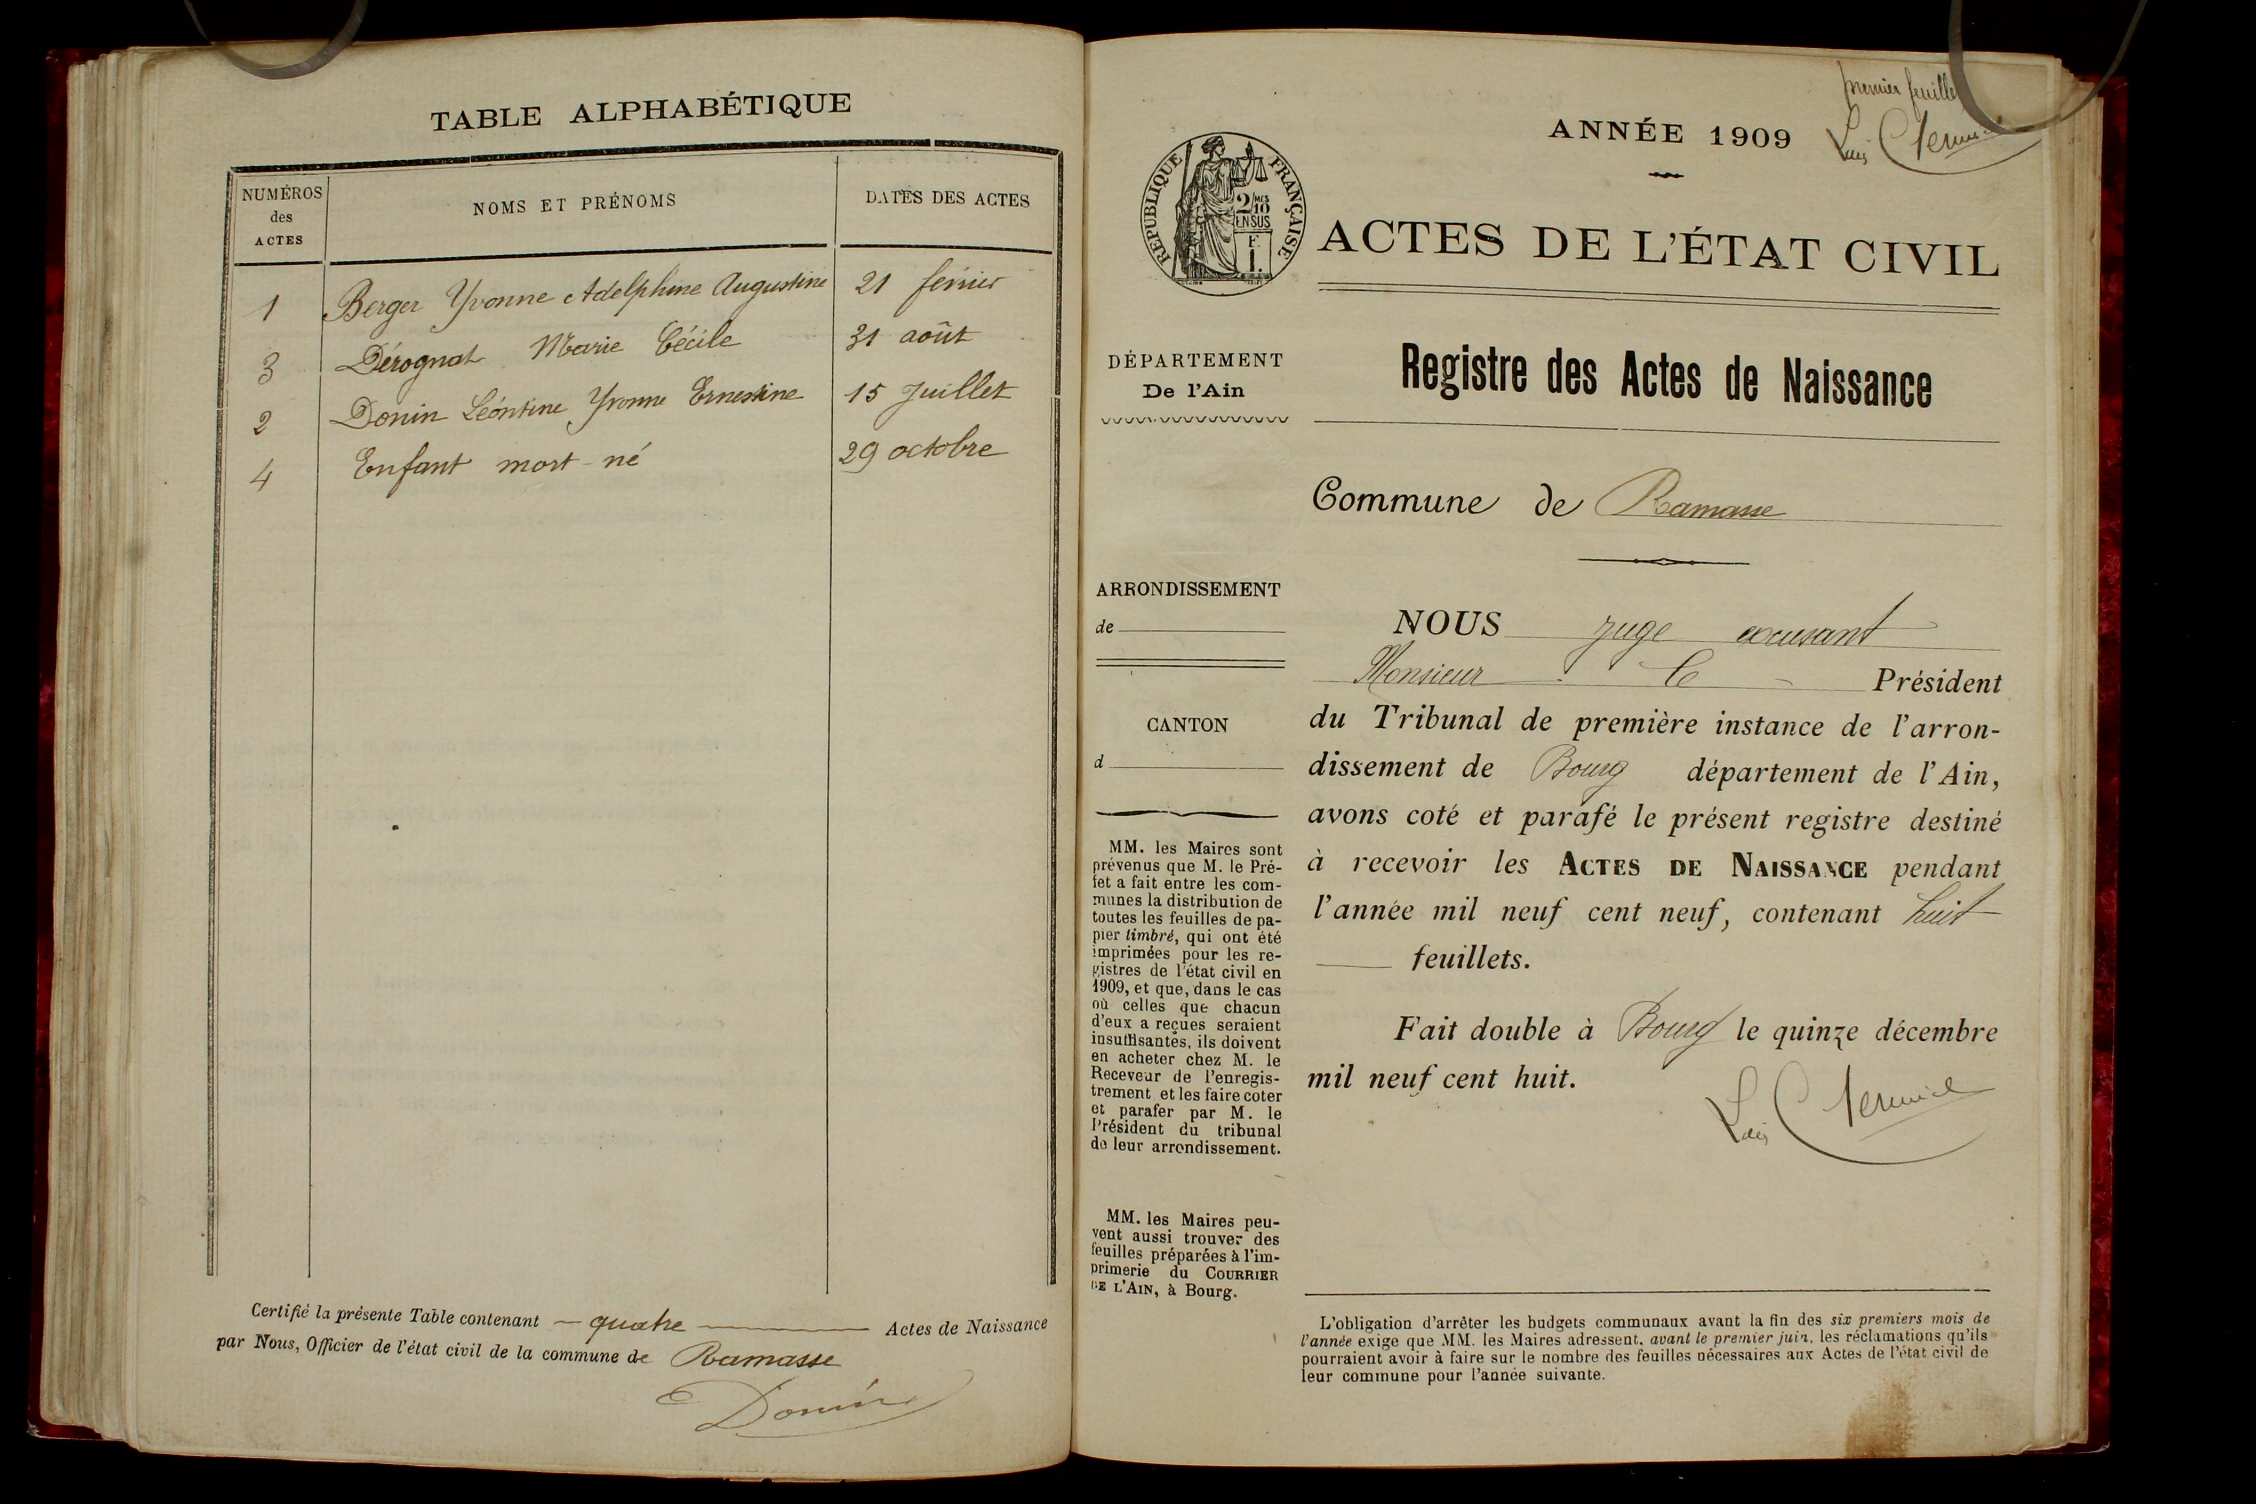 TABLE ALPHABÉTIQUE
NUMÉROS des ACTES
NOMS ET PRÉNOMS
DATES DES ACTES
1 Berger Yvonne Adelphine Augustine 21 février
3 Dérognat Marie Cécile 31 août
2 Donin Léontine Yvonne Ernestine 15 Juillet
4 Enfant mort-né 29 octobre
Certifié la présente Table contenant — quatre — Actes de Naissance
par Nous, Officier de l'état civil de la commune de Ramasse
Donin
premier feuillet
ANNÉE 1909
RÉPUBLIQUE FRANÇAISE
2/10 MES
EN SUS
F.
1.
ACTES DE L'ÉTAT CIVIL
DÉPARTEMENT
De l'Ain
Registre des Actes de Naissance
Commune de Ramasse
ARRONDISSEMENT
de
CANTON
d
MM. les Maires sont
prévenus que M. le Pré-
fet a fait entre les com-
munes la distribution de
toutes les feuilles de pa-
pier timbré, qui ont été
imprimées pour les re-
gistres de l'état civil en
1909, et que, dans le cas
où celles que chacun
d'eux a reçues seraient
insuffisantes, ils doivent
en acheter chez M. le
Receveur de l'enregis-
trement et les faire coter
et parafer par M. le
Président du tribunal
de leur arrondissement.
MM. les Maires peu-
vent aussi trouver des
feuilles préparées à l'im-
primerie du COURRIER
DE L'AIN, à Bourg.
NOUS Juge excusant
Monsieur le Président
du Tribunal de première instance de l'arron-
dissement de Bourg département de l'Ain,
avons coté et parafé le présent registre destiné
à recevoir les ACTES DE NAISSANCE pendant
l'année mil neuf cent neuf, contenant huit
feuillets.
Fait double à Bourg le quinze décembre
mil neuf cent huit.
L'obligation d'arrêter les budgets communaux avant la fin des six premiers mois de
l'année exige que MM. les Maires adressent, avant le premier juin, les réclamations qu'ils
pourraient avoir à faire sur le nombre des feuilles nécessaires aux Actes de l'état civil de
leur commune pour l'année suivante.